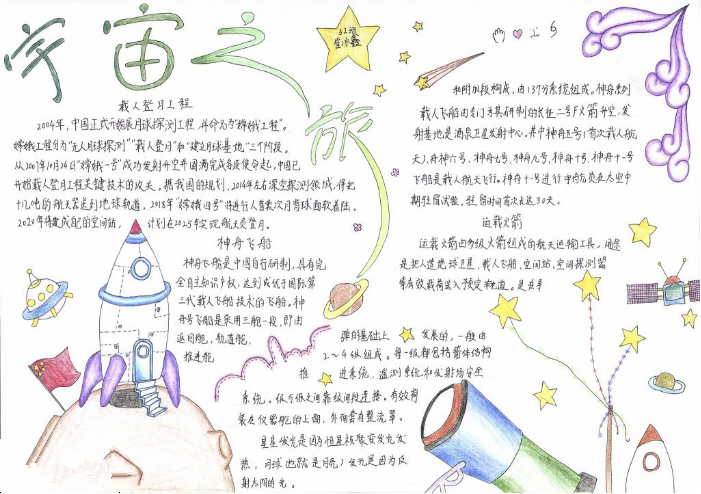 宇宙之旅
载人登月工程
2004年,中国正式开始展月球探测工程,并命名为"嫦娥工程"。
嫦娥工程分为"无人月球探测""载人登月"和"建立月球基地"三个阶段。
从2007年10月24日"嫦娥一号"成功发射升空并圆满完成各项使命起,中国已
开始载人登月工程关键技术的攻关。据我国的规划,2016年左右深空探测领域,将把
十几吨的航天器送到地球轨道,2018年"嫦娥四号"将进行人首类次月背球面软着陆。
2020年将建成的空间站,计划在2025年实现航天员登月。
神舟飞船
神舟飞船是中国自行研制,具有完
全自主知识产权,达到或优于国际第
三代载人飞船技术的飞船。神
舟号飞船是采用三舱一段,即由
返回舱,轨道舱,
推进舱
和附加段构成,由13个分系统组成。神舟系列
载人飞船由专门为其研制的长征二号F火箭升空,发
射基地是酒泉卫星发射中心。其中神舟五号(首次载人航
天),神舟六号、神舟七号、神舟九号、神舟十号、神舟十一号
飞船是载人航天飞行。神舟十一号进行宇航员在太空中
期驻留试验,驻留时间首次长达30天。
运载火箭
运载火箭由多级火箭组成的航天运输工具。用途
是把人造地球卫星、载人飞船、空间站、空间探测器
等有效载荷送入预定轨道。是在导
弹的基础上发展的,一般由
2~4级组成。每一级都包括箭体结构
推进系统,遥测系统和发射场安全
系统。级与级之间靠级间段连接。有效荷
载在仪器舱的上面,外面套有整流罩。
星星发光是因为恒星核聚变发光发
热,月球(也就是月亮)发光是因为反
射太阳的光。